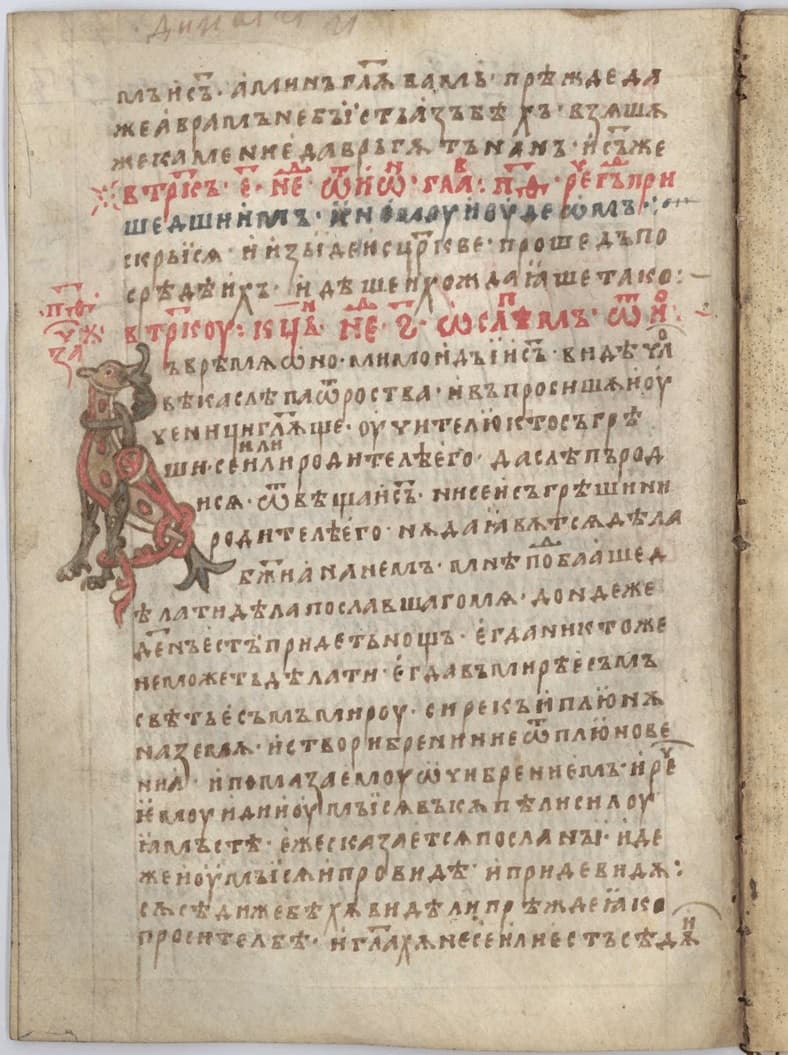 мъ исъ · аминъ глѧ вамъ · прѣжде да
же аврамъ не быстъ азъ бѣхъ · взѧшѧ
же камение да врьгѧтъ нань · исъ же
въ трк҃ъ · е҃ · не҃ · ѿ иѡ · гла · рече гъ при
шедшиимъ · к немоу июудеѡмъ :
скрыїсѧ · и изыде ис црк҃ве · прошедъ по
срѣдѣ ихъ · идѣше и хождааше тако :
въ трк҃оу : кц҃ъ · не҃ · ѕ҃ · ѡ слѣпѣмъ · ѿ иѡ
ъ врѣмѧ ѡно · мимо идыи исъ · видѣ чл
вѣка слѣпа ѿ роства · и въпросишѧ и оу
ченици глѧще · оучителю кто съгрѣ
или
ши · се или родителѣ его · да слѣпъ род
исѧ · ѿвѣща исъ · ни се и съгрѣши ни
родителѣ его · нѫ да ꙗвѧтсѧ дѣла
бж҃иа на немъ · мнѣ подобаашед
ѣлати дѣла пославшаго мѧ · дондеже
денъ естъ придетъ нощъ · егда никтоже
не можетъ дѣлати · егда въ мирѣ есъмъ
свѣтъ есъмъ мироу · си рекъ и плюнѫ
на земѧ · и створи брение ѿ плюнове
ниа · и помаза емоу ѡчи брениемъ · и рече
емоу иди и оумыисѧ въ кѫпѣли силоу
ꙗмъстѣ · еже сказаетсѧ посланы · иде
же и оумыисѧ и провидѣ · и приде видѧ :
сѫсѣди же бѣхѫ видѣли прѣжде ꙗко
проситель бѣ · и глахѫ не се и ли естъ сѣдѧи